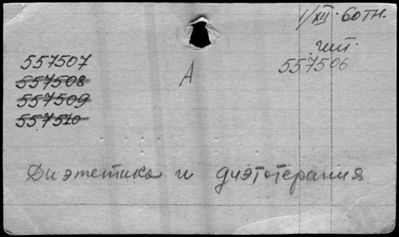 1/XII. 60тн.
чит.
557506
557507
557508
557509
557510
А
Диэтетика и диэтотерапия